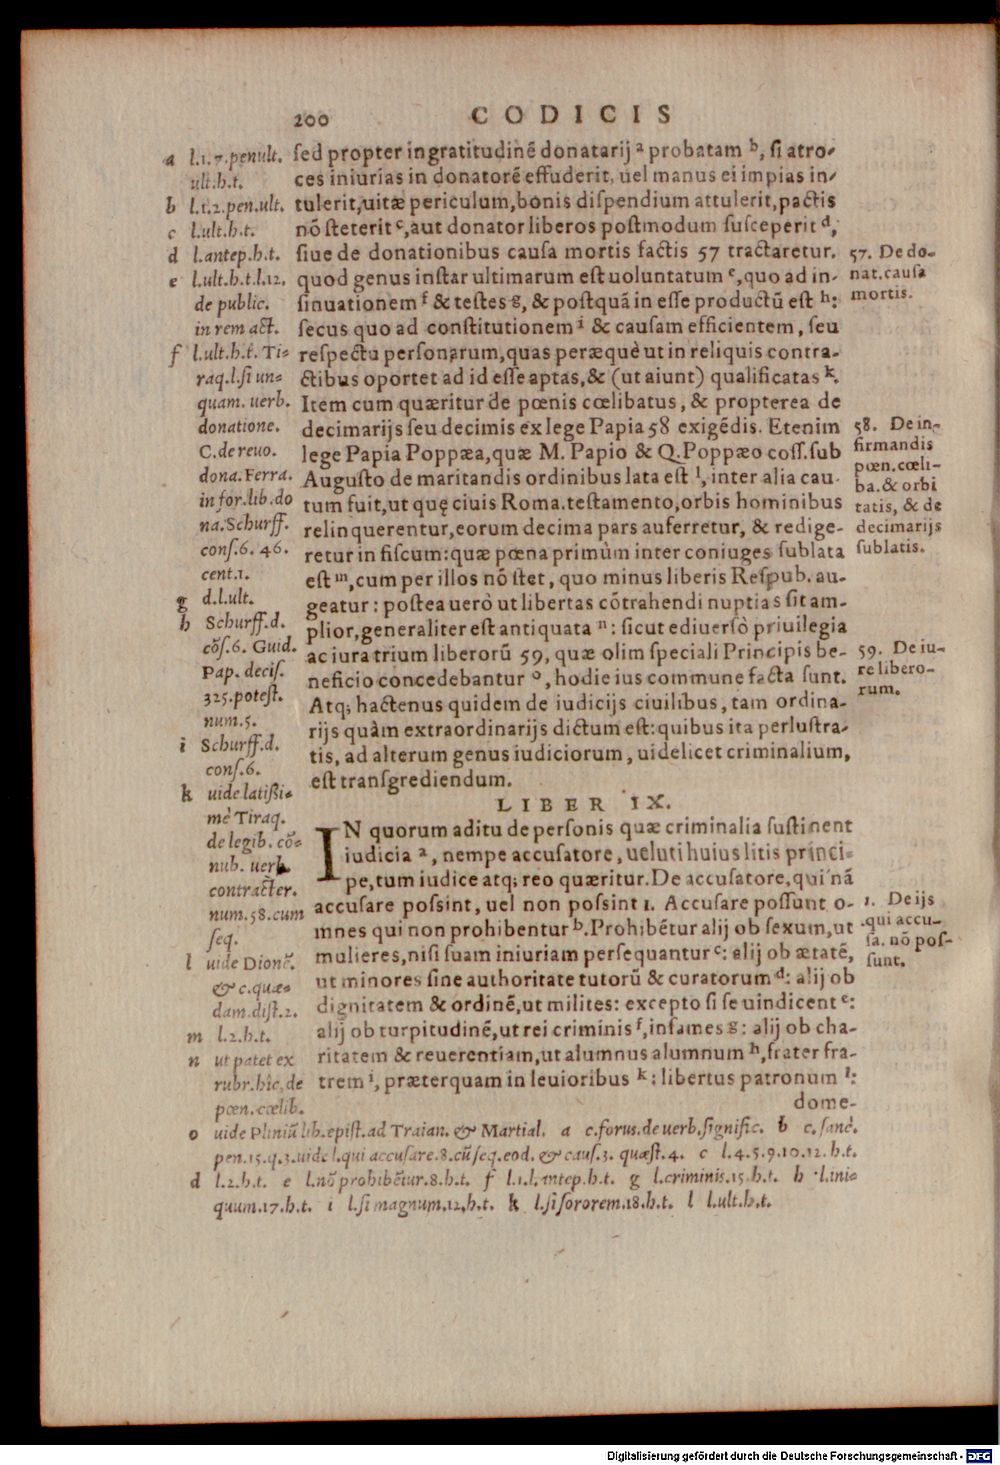 200 CODICIS
a l.1.7.penult.
ult.h.t.
b l.1.2.pen.ult.
c l.ult.h.t.
d l.antep.h.t.
e l.ult.h.t.l.12.
de public.
in rem act.
f l.ult.h.t. Ti=
raq.l.si un=
quam. uerb.
donatione.
C.de reuo.
dona.Ferra.
in for.lib.do
na.Schurff.
cons.6. 46.
cent.1.
g d.l.ult.
h Schurff.d.
cõs.6. Guid.
Pap. decis.
325.potest.
num.5.
i Schurff.d.
cons.6.
k uide latißi=
mè Tiraq.
de legib. cõ=
nub. uerb.
contracter.
num.58.cum
seq.
l uide Dionẽ.
& c.quæ=
dam.dist.2.
m l.2.h.t.
n ut patet ex
rubr.hic,de
pœn.cœlib.
sed propter ingratitudinẽ donatarij a probatam b, si atro-
ces iniurias in donatorẽ effuderit, uel manus ei impias in-
tulerit,uitæ periculum,bonis dispendium attulerit,pactis
nõ steterit c,aut donator liberos postmodum susceperit d,
siue de donationibus causa mortis factis 57 tractaretur.
quod genus instar ultimarum est uoluntatum e,quo ad in-
sinuationem f & testes g, & postquã in esse productũ est h:
secus quo ad constitutionem i & causam efficientem, seu
respectu personarum,quas peræquè ut in reliquis contra-
ctibus oportet ad id esse aptas,& (ut aiunt) qualificatas k.
Item cum quæritur de pœnis cœlibatus, & propterea de
decimarijs seu decimis ex lege Papia 58 exigẽdis. Etenim
lege Papia Poppæa,quæ M. Papio & Q.Poppæo coss.sub
Augusto de maritandis ordinibus lata est l, inter alia cau-
tum fuit,ut quę ciuis Roma.testamento,orbis hominibus
relinquerentur,eorum decima pars auferretur, & redige-
retur in fiscum:quæ pœna primùm inter coniuges sublata
est m,cum per illos nõ stet, quo minus liberis Respub. au-
geatur: postea uerò ut libertas cõtrahendi nuptias sit am-
plior,generaliter est antiquata n: sicut ediuersò priuilegia
ac iura trium liberorũ 59, quæ olim speciali Principis be-
neficio concedebantur o, hodie ius commune facta sunt.
Atq; hactenus quidem de iudicijs ciuilibus, tam ordina-
rijs quàm extraordinarijs dictum est: quibus ita perlustra-
tis, ad alterum genus iudiciorum, uidelicet criminalium,
est transgrediendum.
LIBER IX.
IN quorum aditu de personis quæ criminalia sustinent
iudicia a, nempe accusatore, ueluti huius litis princi=
pe,tum iudice atq; reo quæritur.De accusatore,qui nã
accusare possint, uel non possint 1. Accusare possunt o-
mnes qui non prohibentur b.Prohibẽtur alij ob sexum,ut
mulieres,nisi suam iniuriam persequantur c: alij ob ætatẽ,
ut minores sine authoritate tutorũ & curatorum d: alij ob
dignitatem & ordinẽ,ut milites: excepto si se uindicent e:
alij ob turpitudinẽ,ut rei criminis f,infames g: alij ob cha-
ritatem & reuerentiam,ut alumnus alumnum h,frater fra-
trem i, præterquam in leuioribus k: libertus patronum l:
dome-
57. De do-
nat.causa
mortis.
58. De in-
firmandis
pœn.cœli-
ba.& orbi
tatis, & de
decimarijs
sublatis.
59. De iu-
re libero-
rum.
1. De ijs
qui accu-
sa. nõ pos-
sunt.
o uide Pliniũ lib.epist.ad Traian. & Martial. a c.forus.de uerb.signific. b c.sanè.
pen.15.q.3.uide l.qui accusare.8.cũ seq.eod. & caus.3. quæst.4. c l.4.5.9.10.12.h.t.
d l.2.h.t. e l.nõ prohibẽtur.8.h.t. f l.1.l.antep.h.t. g l.criminis.15.h.t. h l.ini=
quum.17.h.t. i l.si magnum.12.h.t. k l.si sororem.18.h.t. l l.ult.h.t.
Digitalisierung gefördert durch die Deutsche Forschungsgemeinschaft - DFG